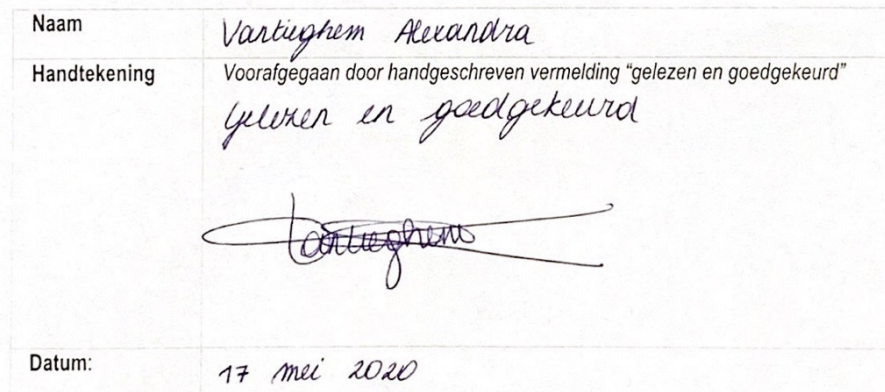 Naam Vantieghem Alexandra
Handtekening Voorafgegaan door handgeschreven vermelding "gelezen en goedgekeurd"
gelezen en goedgekeurd
Vantieghem
Datum: 17 mei 2020